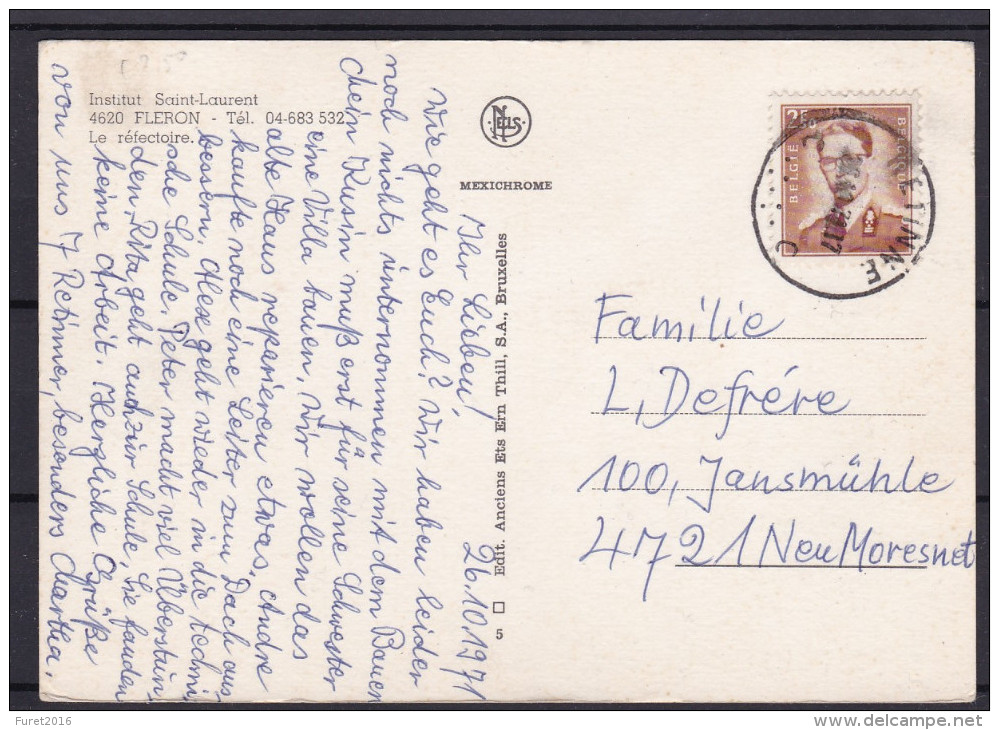 Institut Saint-Laurent
4620 FLERON - Tél. 04-683 532
Le réfectoire.
NELS
MEXICHROME
Edit. Anciens Ets Ern Thill, S.A., Bruxelles
5
26.10.1971
Ihr Lieben!
Wie geht es Euch? Wir haben leider
noch nichts unternommen mit dem Bauen
dein Kusin muß erst für seine Schwester
eine Villa bauen. Wir wollen das
alte Haus reparieren etwas. Andre
kaufte noch eine Leiter zum Dach aus
bessern. geht wieder in die techni
sche Schule. Peter macht viel Überstun
den. Rita geht auch zur Schule, Sie fanden
keine Arbeit. Herzliche Grüße
von uns 7 Retinner, besonders Martha.
BELGIE
BELGIQUE
RETINNE
Familie
L. Defrére
100, Jansmühle
4721 Neu Moresnet
Furet2016
delcampe.net